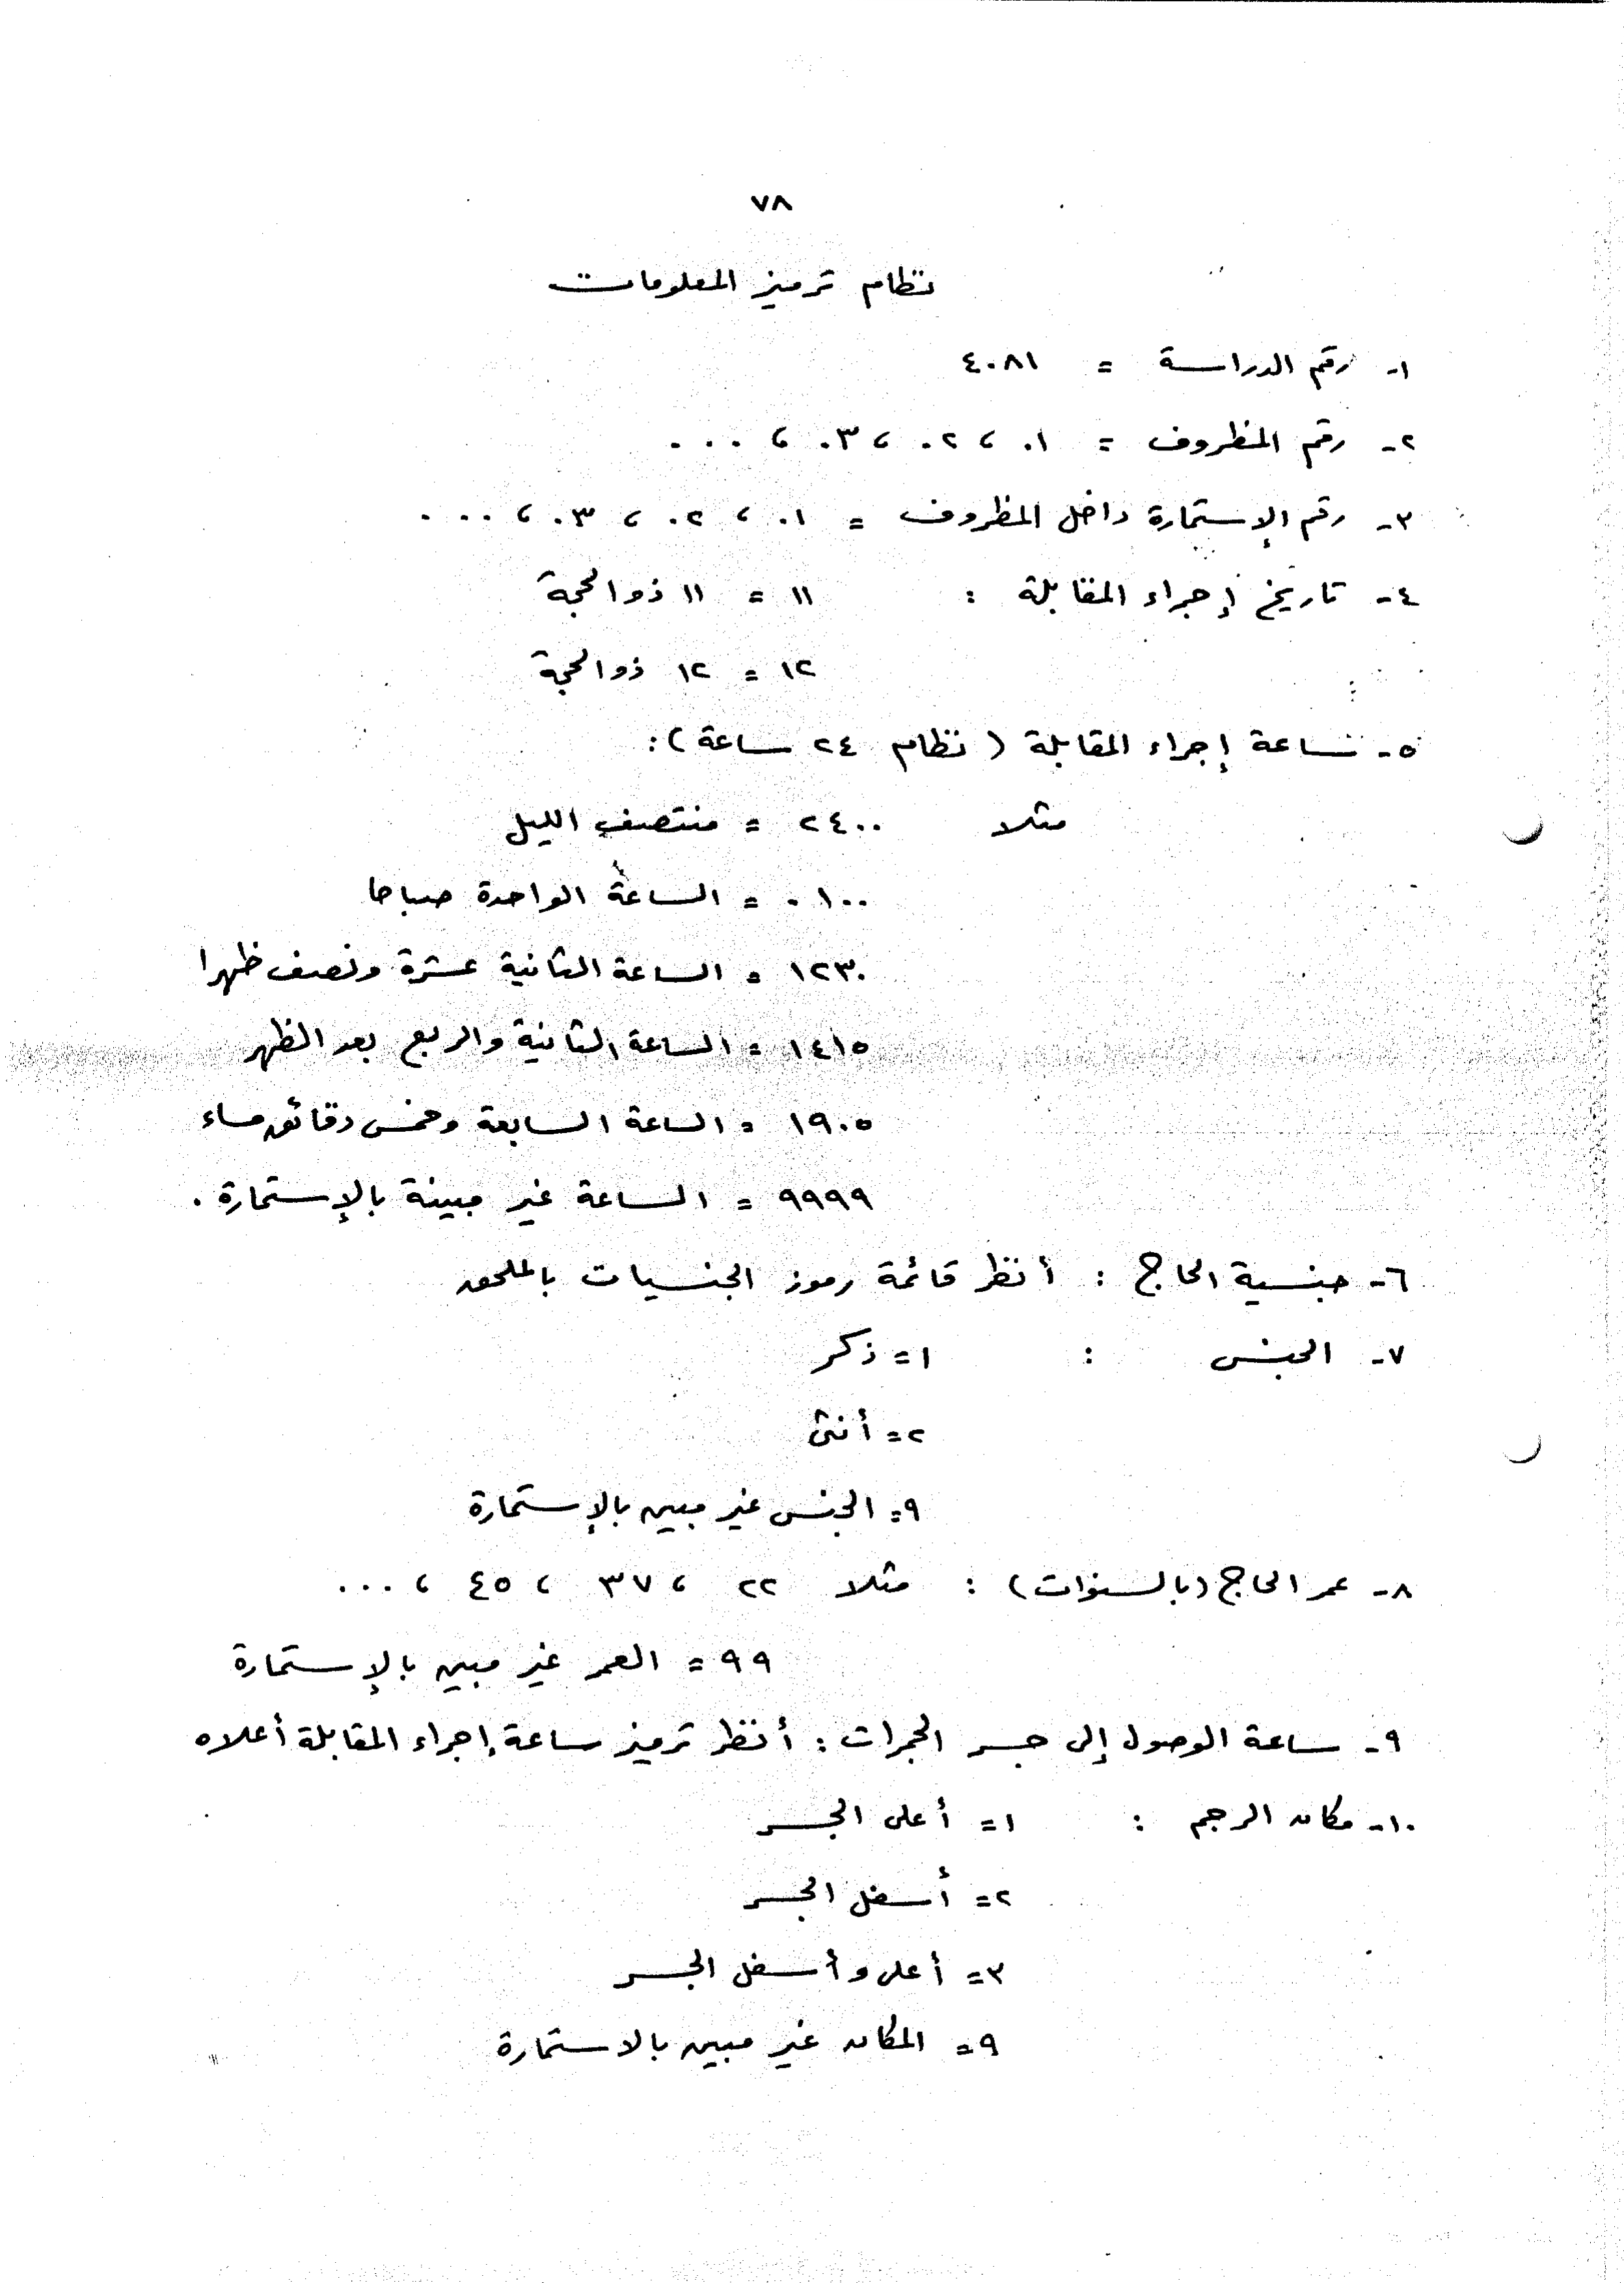 ٧٨
نظام ترميز المعلومات
١- رقم الدراسة = ٤٠٨١
٢- رقم المظروف = ٠١ ، ٠٢ ، ٠٣ ، ...
٣- رقم الإستمارة داخل المظروف = ٠١ ، ٠٢ ، ٠٣ ، ...
٤- تاريخ إجراء المقابلة : ١١ = ١١ ذو الحجة
١٢ = ١٢ ذو الحجة
٥- ساعة إجراء المقابلة ( نظام ٢٤ ساعة ) :
مثلا ٢٤٠٠ = منتصف الليل
٠١٠٠ = الساعة الواحدة صباحا
١٢٣٠ = الساعة الثانية عشرة ونصف ظهرا
١٤١٥ = الساعة الثانية والربع بعد الظهر
١٩٠٥ = الساعة السابعة وخمس دقائق مساء
٩٩٩٩ = الساعة غير مبينة بالإستمارة .
٦- جنسية الحاج : أنظر قائمة رموز الجنسيات بالملحق
٧- الجنس : ١ = ذكر
٢ = أنثى
٩ = الجنس غير مبين بالإستمارة
٨- عمر الحاج ( بالسنوات ) : مثلا ٢٢ ، ٣٧ ، ٤٥ ، ...
٩٩ = العمر غير مبين بالإستمارة
٩- ساعة الوصول إلى جسر الجمرات : أنظر ترميز ساعة إجراء المقابلة أعلاه
١٠- مكان الرجم : ١ = أعلى الجسر
٢ = أسفل الجسر
٣ = أعلى وأسفل الجسر
٩ = المكان غير مبين بالاستمارة